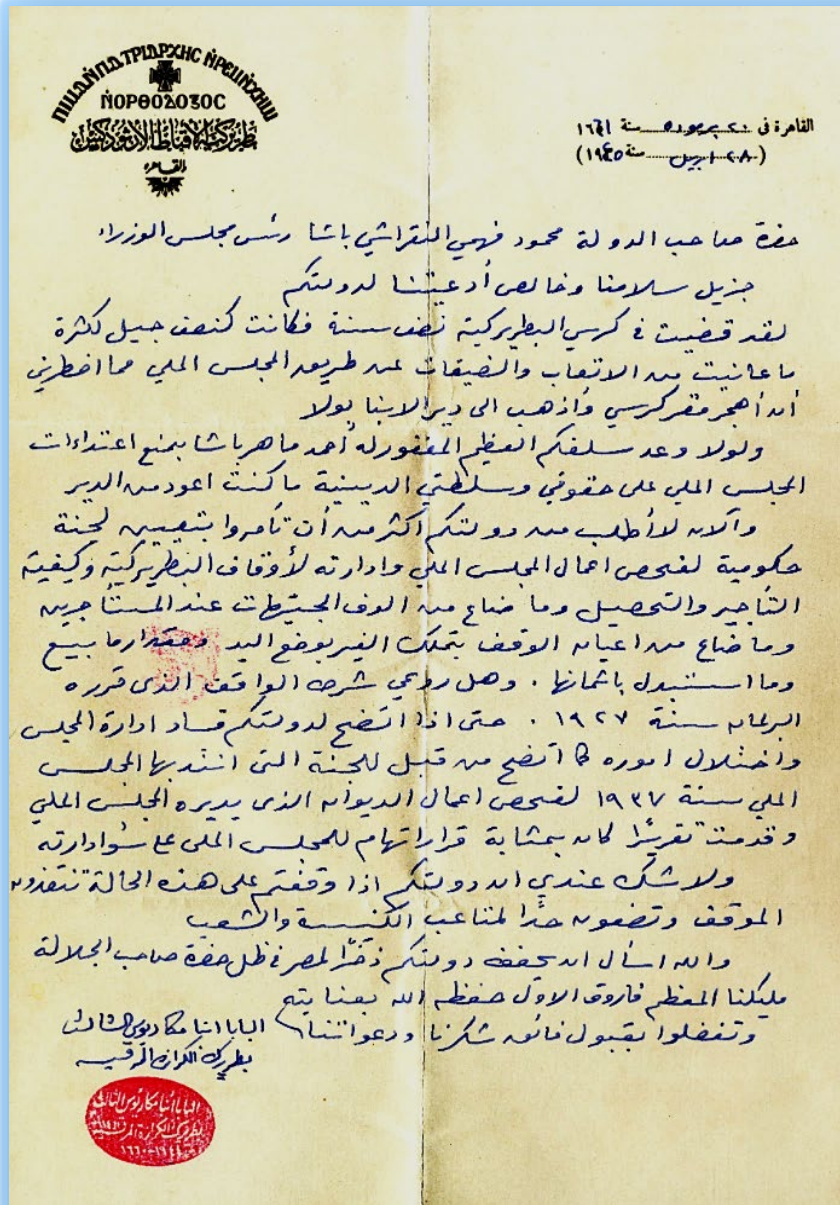 ⲠⲒⲘⲀⲚⲠⲀⲦⲢⲒⲀⲢⲬⲎⲤ ⲚⲢⲈⲘⲚⲬⲎⲘⲒ
ⲚⲞⲢⲐⲞⲆⲞⲜⲞⲤ
بطريركية الأقباط الأرثوذكس
بالقاهرة
القاهرة فى ٢٠ برموده سنة ١٦٦١
(٢٨ ابريل سنة ١٩٤٥)
حضرة صاحب الدولة محمود فهمي النقراشي باشا رئيس مجلس الوزراء
جزيل سلامنا وخالص أدعيتنا لدولتكم
لقد قضيت فى كرسي البطريركية نصف سنة فكانت كنصف جيل لكثرة
ما عانيت من الاتعاب والضيقات عن طريق المجلس الملي مما اضطرني
أن أهجر مقر كرسي وأذهب الى دير الانبا بولا
ولولا وعد سلفكم العظيم المغفور له أحمد ماهر باشا بمنع اعتداءات
المجلس الملي على حقوقي وسلطتي الدينية ما كنت اعود من الدير
وآلان لا أطلب من دولتكم اكثر من أن تأمروا بتعيين لجنة
حكومية لفحص اعمال المجلس الملي وادارته لأوقاف البطريركية وكيفية
التأجير والتحصيل وما ضاع من الوف الجنيهات عند المستأجرين
وما ضاع من اعيان الوقف بتملك الغير بوضع اليد ومقدار ما بيع
وما استبدل باثمانها . وهل روعي شرط الواقف الذى قرره
البرلمان سنة ١٩٢٧ . حتى اذا اتضح لدولتكم فساد ادارة المجلس
واختلال اموره كما اتضح من قبل للجنة التى انتدبها المجلس
الملي سنة ١٩٣٧ لفحص اعمال الديوان الذى يديره المجلس الملي
وقدمت تقريرًا كان بمثابة قرار اتهام للمجلس الملى على سؤ ادارته
ولا شك عندي ان دولتكم اذا وقفتم على هذه الحالة تنقذون
الموقف وتضعون حدًا لمتاعب الكنيسة والشعب
والله اسأل ان يحفظ دولتكم ذخرًا لمصر فى ظل حضرة صاحب الجلالة
مليكنا المعظم فاروق الاول حفظه الله بعنايته
وتفضلوا بقبول فائق شكرنا ودعواتنا
البابا انبا مكاريوس الثالث
بطريرك الكرازة المرقسية
البابا انبا مكاريوس الثالث
بطريرك الكرازة المرقسية
١٩٤٤ - ١٦٦٠